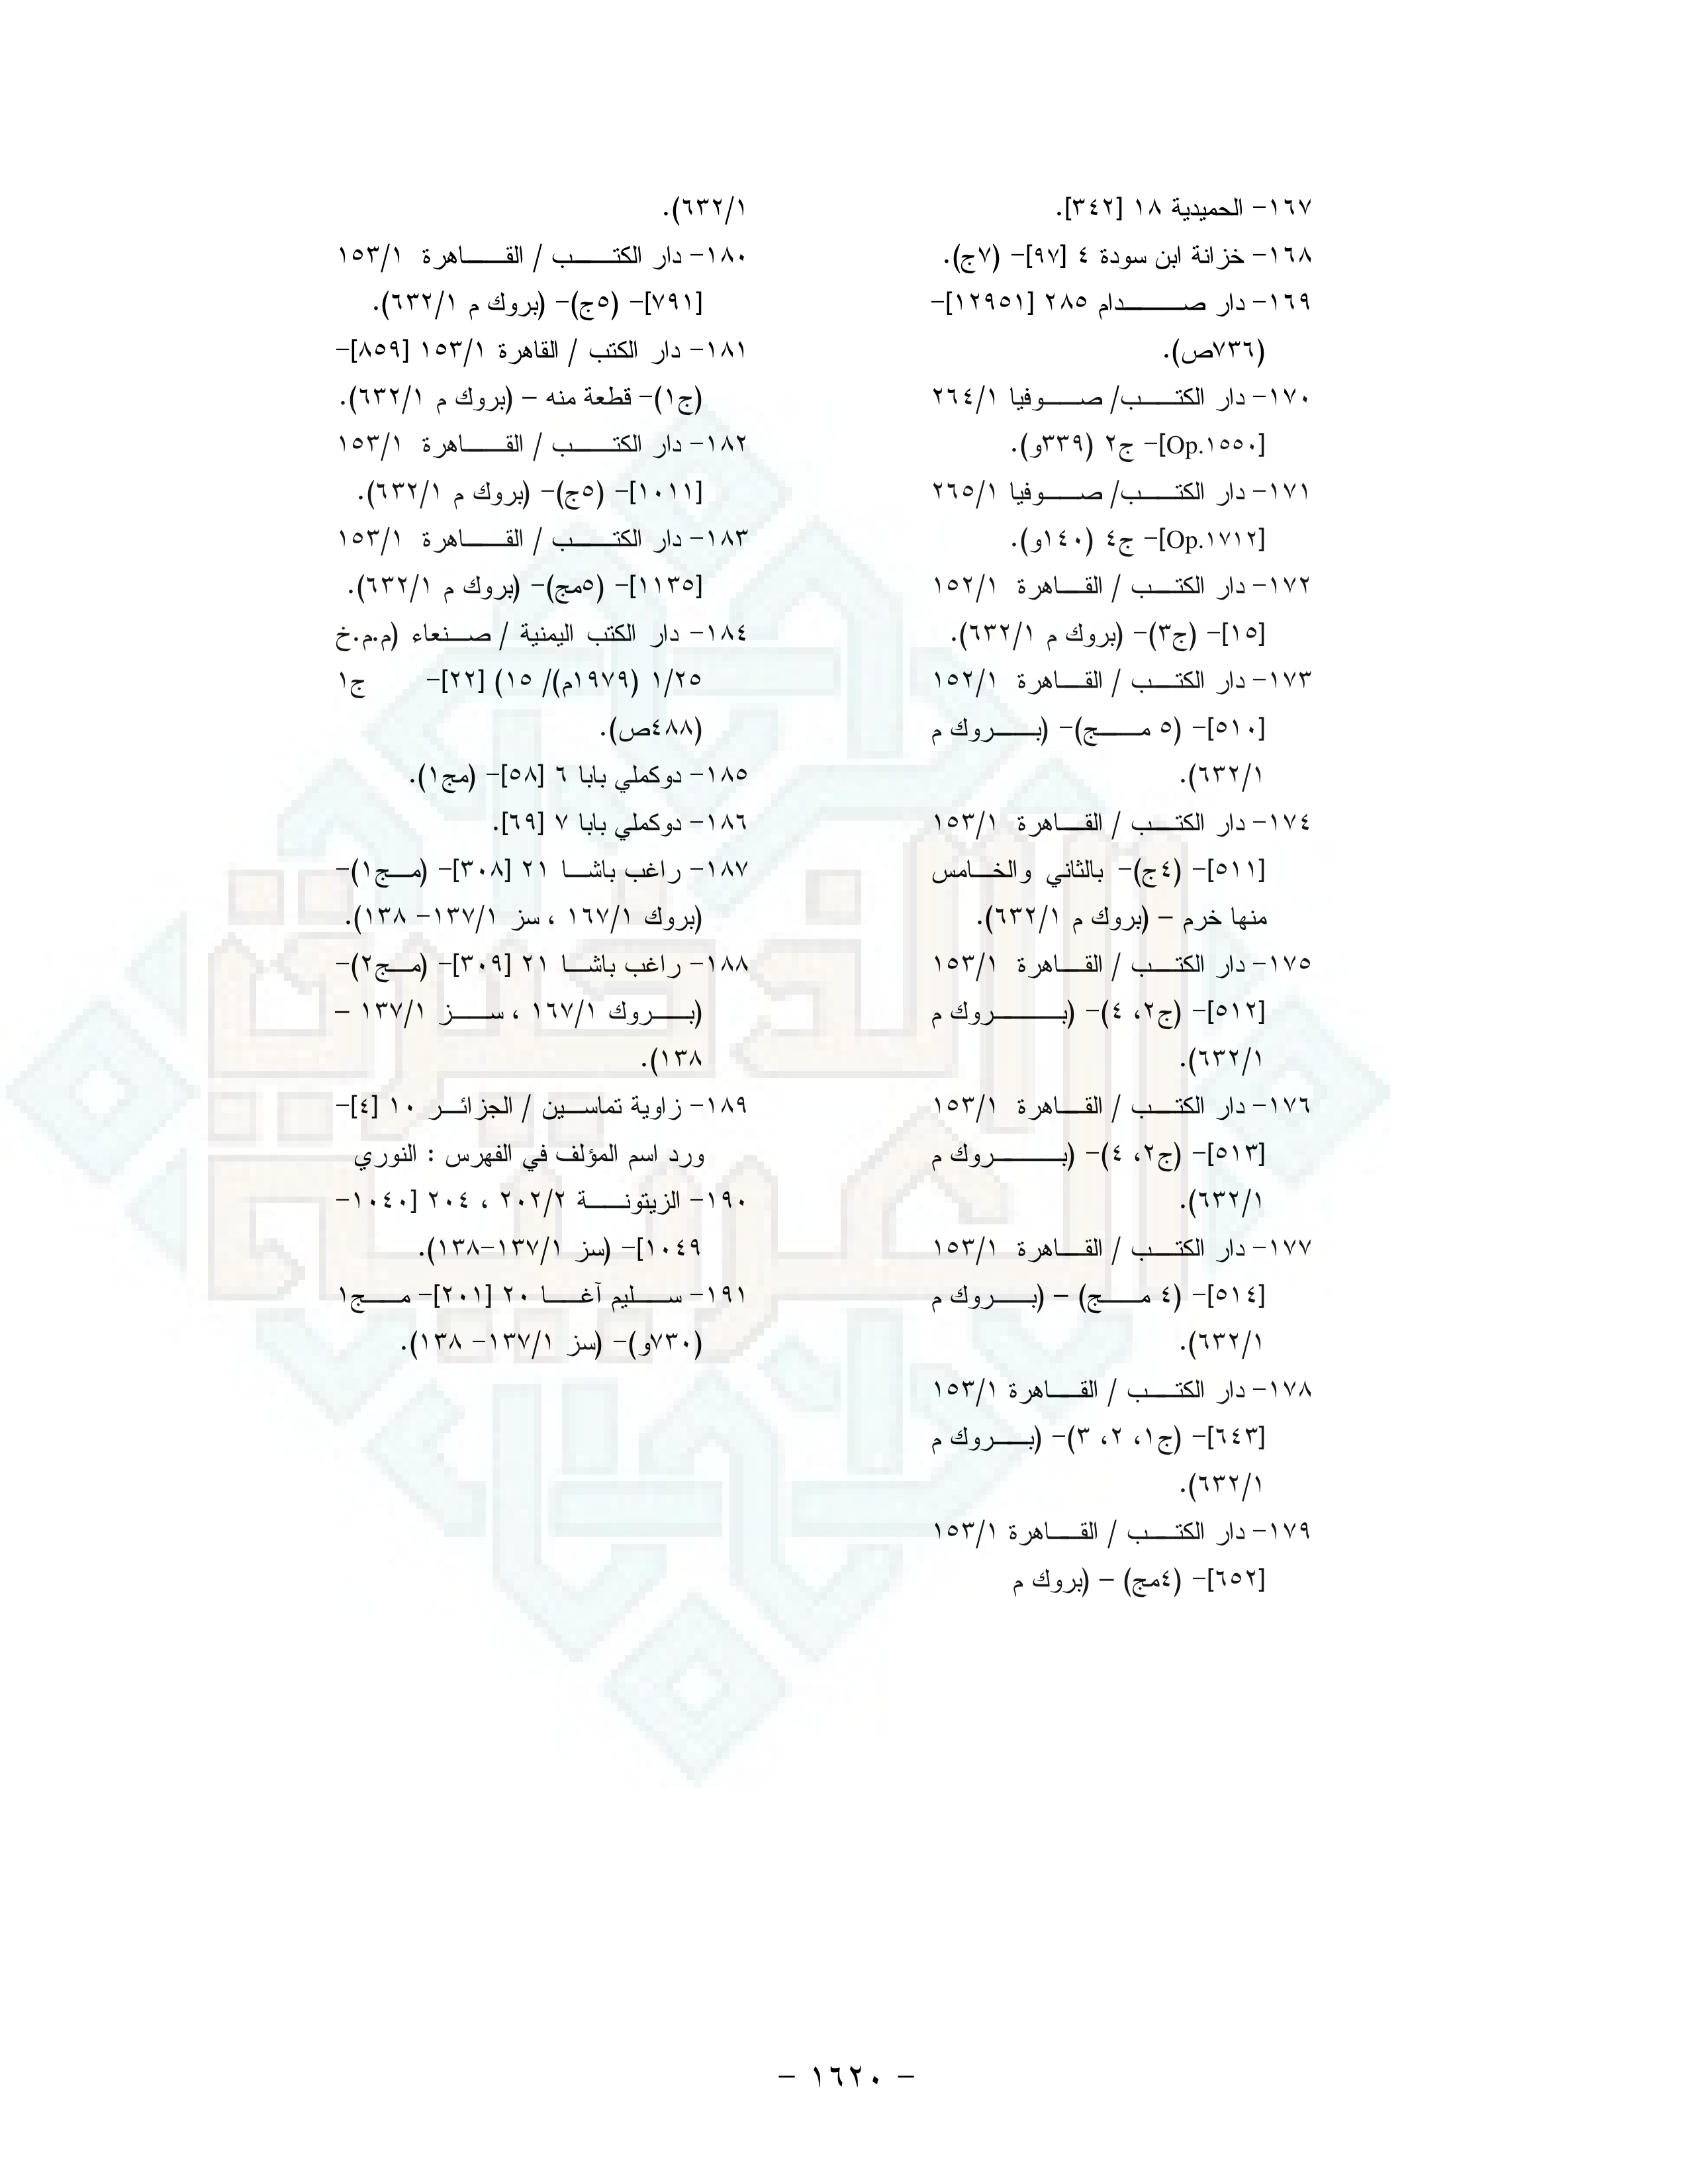 ١٦٧- الحميدية ١٨ [٣٤٢].
١٦٨- خزانة ابن سودة ٤ [٩٧]- (٧ج).
١٦٩- دار صدام ٢٨٥ [١٢٩٥١]-
(٧٣٦ص).
١٧٠- دار الكتب/ صوفيا ٢٦٤/١
[Op.١٥٥٠]- ج٢ (٣٣٩و).
١٧١- دار الكتب/ صوفيا ٢٦٥/١
[Op.١٧١٢]- ج٤ (١٤٠و).
١٧٢- دار الكتب / القاهرة ١٥٢/١
[١٥]- (ج٣)- (بروك م ٦٣٢/١).
١٧٣- دار الكتب / القاهرة ١٥٢/١
[٥١٠]- (٥ مج)- (بروك م
٦٣٢/١).
١٧٤- دار الكتب / القاهرة ١٥٣/١
[٥١١]- (٤ج)- بالثاني والخامس
منها خرم – (بروك م ٦٣٢/١).
١٧٥- دار الكتب / القاهرة ١٥٣/١
[٥١٢]- (ج٢، ٤)- (بروك م
٦٣٢/١).
١٧٦- دار الكتب / القاهرة ١٥٣/١
[٥١٣]- (ج٢، ٤)- (بروك م
٦٣٢/١).
١٧٧- دار الكتب / القاهرة ١٥٣/١
[٥١٤]- (٤ مج) – (بروك م
٦٣٢/١).
١٧٨- دار الكتب / القاهرة ١٥٣/١
[٦٤٣]- (ج١، ٢، ٣)- (بروك م
٦٣٢/١).
١٧٩- دار الكتب / القاهرة ١٥٣/١
[٦٥٢]- (٤مج) – (بروك م
٦٣٢/١).
١٨٠- دار الكتب / القاهرة ١٥٣/١
[٧٩١]- (٥ج)- (بروك م ٦٣٢/١).
١٨١- دار الكتب / القاهرة ١٥٣/١ [٨٥٩]-
(ج١)- قطعة منه – (بروك م ٦٣٢/١).
١٨٢- دار الكتب / القاهرة ١٥٣/١
[١٠١١]- (٥ج)- (بروك م ٦٣٢/١).
١٨٣- دار الكتب / القاهرة ١٥٣/١
[١١٣٥]- (٥مج)- (بروك م ٦٣٢/١).
١٨٤- دار الكتب اليمنية / صنعاء (م.م.خ
١/٢٥ (١٩٧٩م)/ ١٥) [٢٢]- ج١
(٤٨٨ص).
١٨٥- دوكملي بابا ٦ [٥٨]- (مج١).
١٨٦- دوكملي بابا ٧ [٦٩].
١٨٧- راغب باشا ٢١ [٣٠٨]- (مج١)-
(بروك ١٦٧/١ ، سز ١٣٧/١- ١٣٨).
١٨٨- راغب باشا ٢١ [٣٠٩]- (مج٢)-
(بروك ١٦٧/١ ، سز ١٣٧/١ –
١٣٨).
١٨٩- زاوية تماسين / الجزائر ١٠ [٤]-
ورد اسم المؤلف في الفهرس : النوري
١٩٠- الزيتونة ٢٠٢/٢ ، ٢٠٤ [١٠٤٠-
١٠٤٩]- (سز ١٣٧/١-١٣٨).
١٩١- سليم آغا ٢٠ [٢٠١]- مج١
(٧٣٠و)- (سز ١٣٧/١- ١٣٨).
الذخيرة
العربية
- ١٦٢٠ -